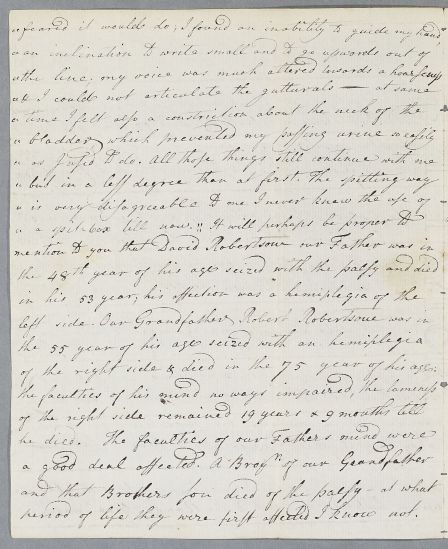 "feared it would do; I found an inability to guide my hand &
"an inclination to write small and to go upwards out of
"the line. my voice was much altered towards a hoarseness
"& I could not articulate the gutturals — at same
"time I felt also a constriction about the neck of the
"bladder, which prevented my passing urine so easily
"as I used to do. All those things still continue with me
"but in a less degree than at first. The spitting way
"is very disagreeable to one I never knew the use of
"a spit-box till now." It will perhaps be proper to
mention to you that David Robertson our Father was in
the 48th year of his age seized with the palsy and died
in his 53 year; his affection was a hemiplegia of the
left side. Our Grandfather, Robert Robertson was in
the 55 year of his age seized with an hemiplegia
of the right side & died in the 75 year of his age:
the faculties of his mind no ways impaired, the lameness
of the right side remained 19 years & 9 months till
he died. The faculties of our Fathers mind were
a good deal affected. A Bror. of our Grandfather
and that Brothers son died of the palsy - at what
period of life they were first affected I know not.